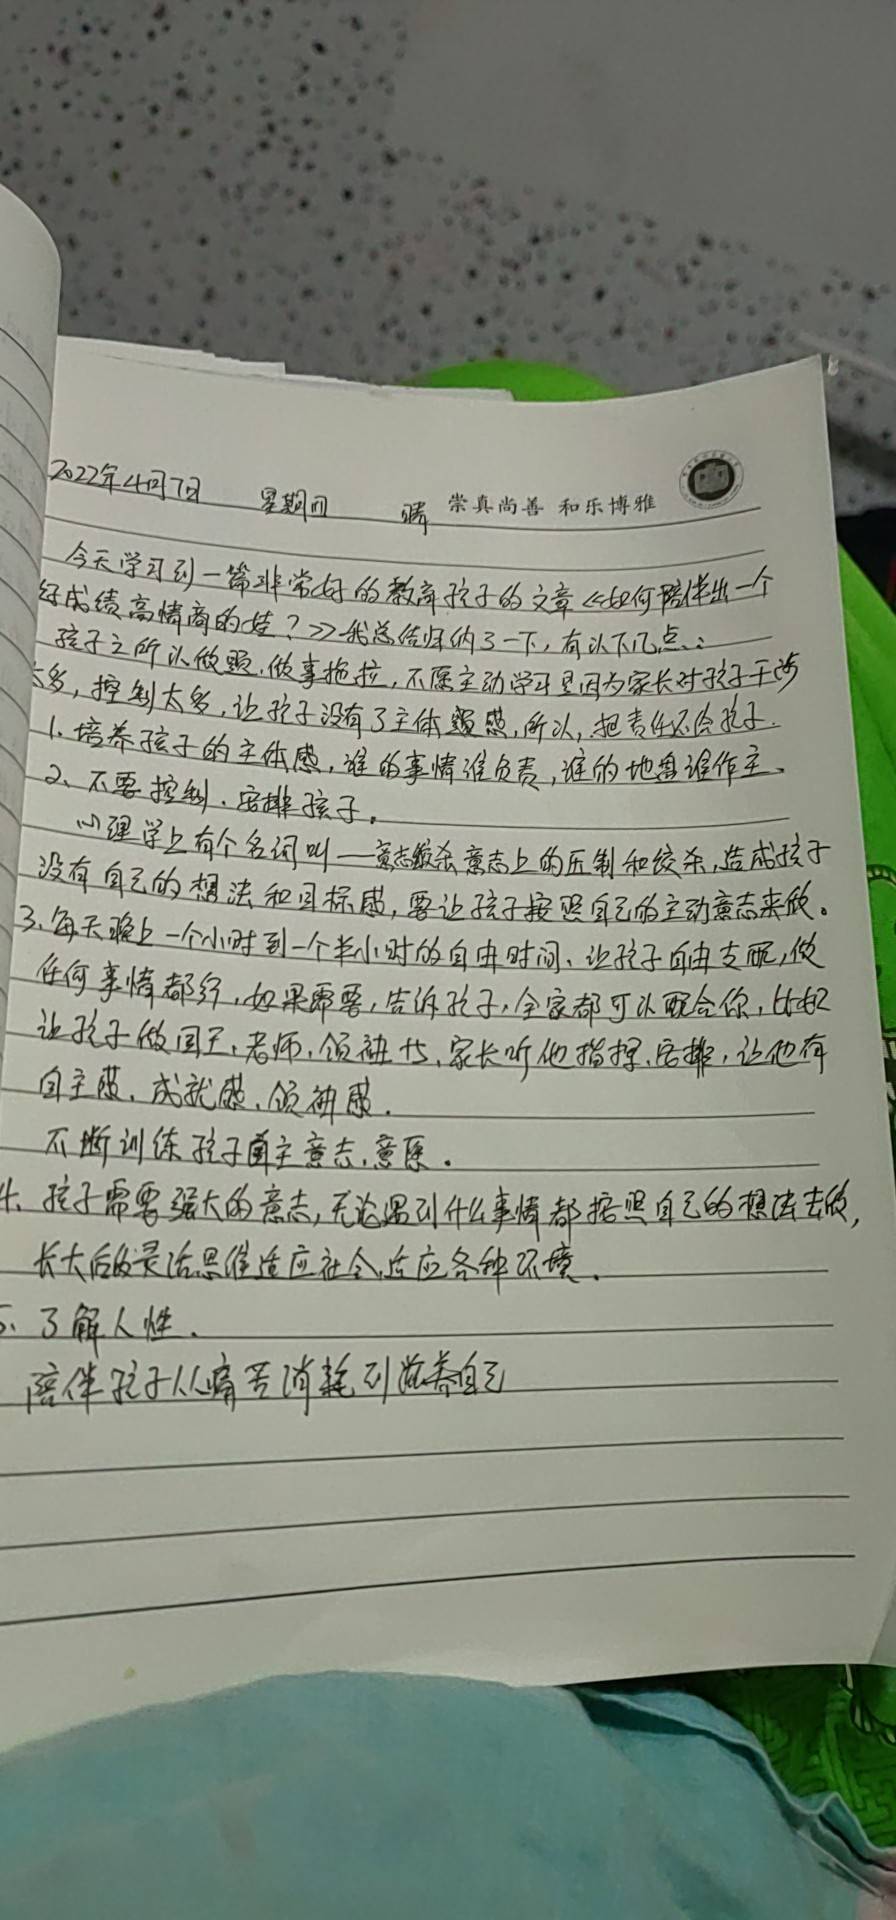 2022年4月7日 星期四 晴 崇真尚善 和乐博雅
今天学习到一篇非常好的教育孩子的文章《如何陪伴出一个
好成绩高情商的娃?》我总结归纳了一下,有以下几点:
孩子之所以做题、做事拖拉,不愿主动学习是因为家长对孩子干涉
太多,控制太多,让孩子没有了主体感,所以,把责任还给孩子.
1、培养孩子的主体感,谁的事情谁负责,谁的地盘谁作主、
2、不要控制、安排孩子。
心理学上有个名词叫——意志绞杀意志上的压制和绞杀,造成孩子
没有自己的想法和目标感,要让孩子按照自己的主动意志来做。
3、每天晚上一个小时到一个半小时的自由时间、让孩子自由支配,做
任何事情都行,如果需要,告诉孩子,全家都可以配合你,比如
让孩子做国王、老师、领袖、家长听他指挥、安排,让他有
自主感、成就感、领袖感.
不断训练孩子自主意志、意愿。
4、孩子需要强大的意志,无论遇到什么事情都按照自己的想法去做,
长大后的灵活思维适应社会,适应各种环境、
5、了解人性.
陪伴孩子从痛苦消耗到滋养自己